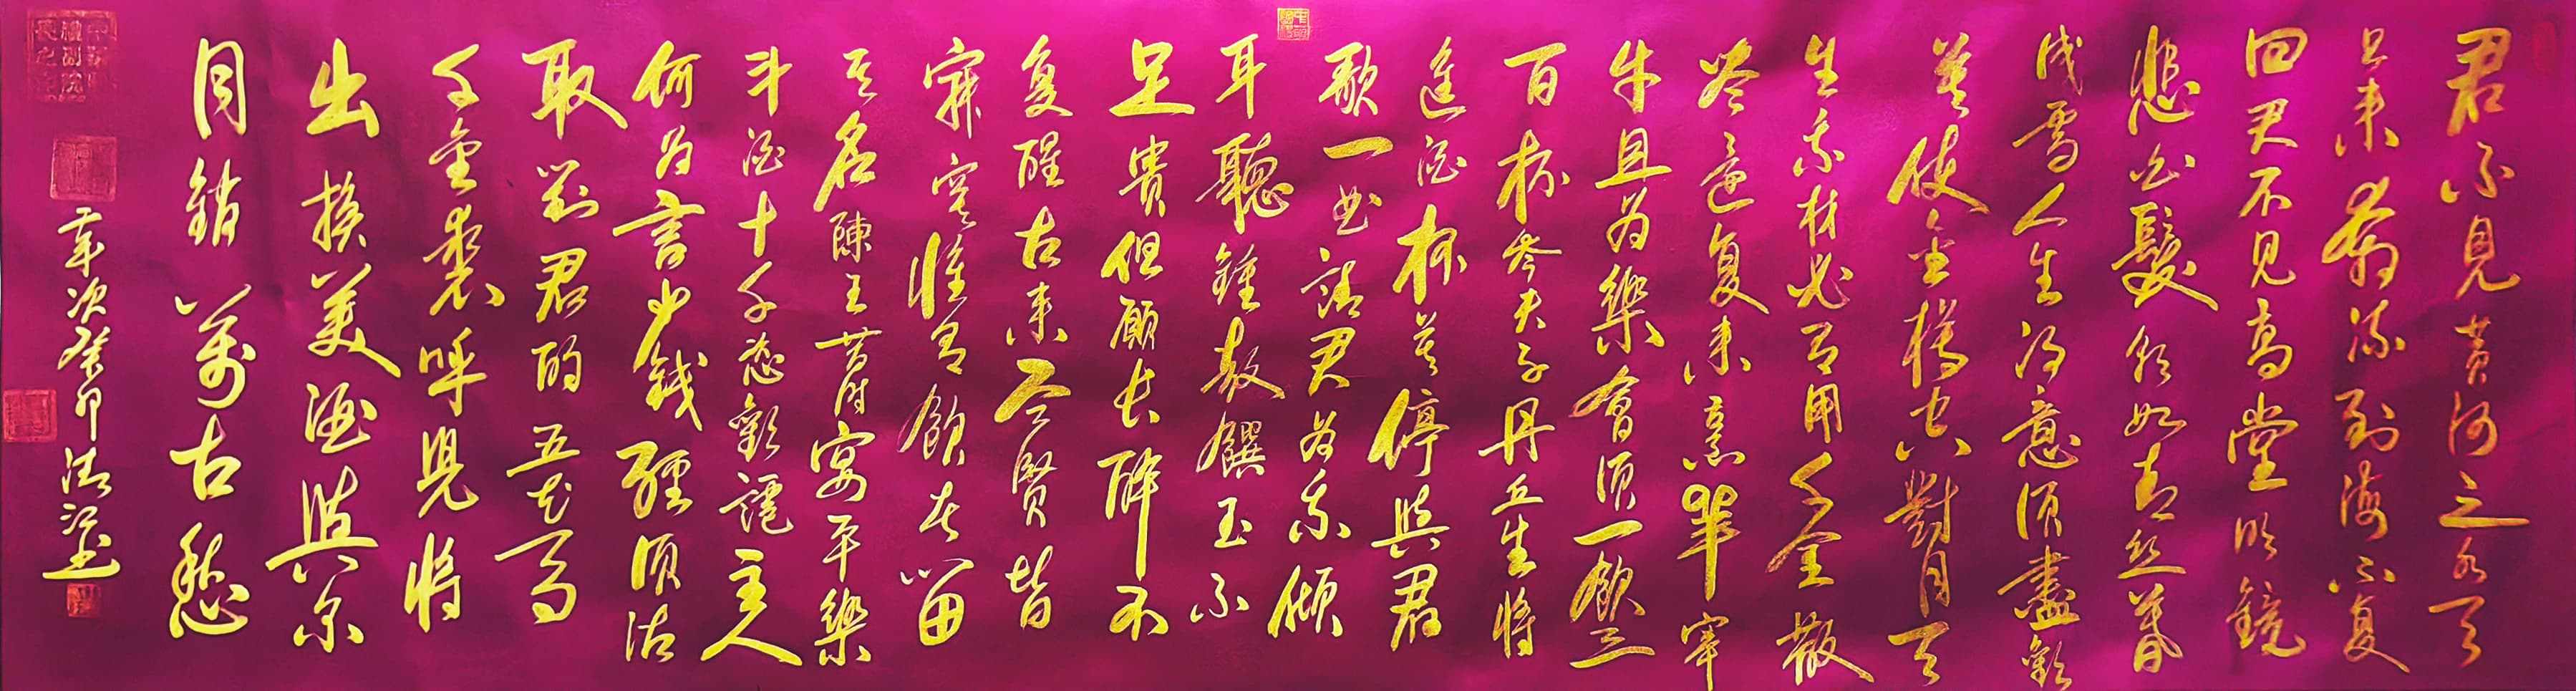 君不見黃河之水天
上来奔流到海不复
回君不见高堂明鏡
悲白髮朝如青丝暮
成雪人生得意须盡歡
莫使金樽空對月天
生我材必有用千金散
尽還复来烹羊宰
牛且为樂會须一飲三
百杯岑夫子丹丘生将
進酒杯莫停與君
歌一曲請君为我傾
耳聽鐘鼓饌玉不
足貴但願长醉不
复醒古来圣賢皆
寂寞惟有飲者留
其名陳王昔时宴平樂
斗酒十千恣歡謔主人
何为言少錢徑须沽
取對君酌五花马
千金裘呼児将
出換美酒與尔
同銷萬古愁
次癸卯